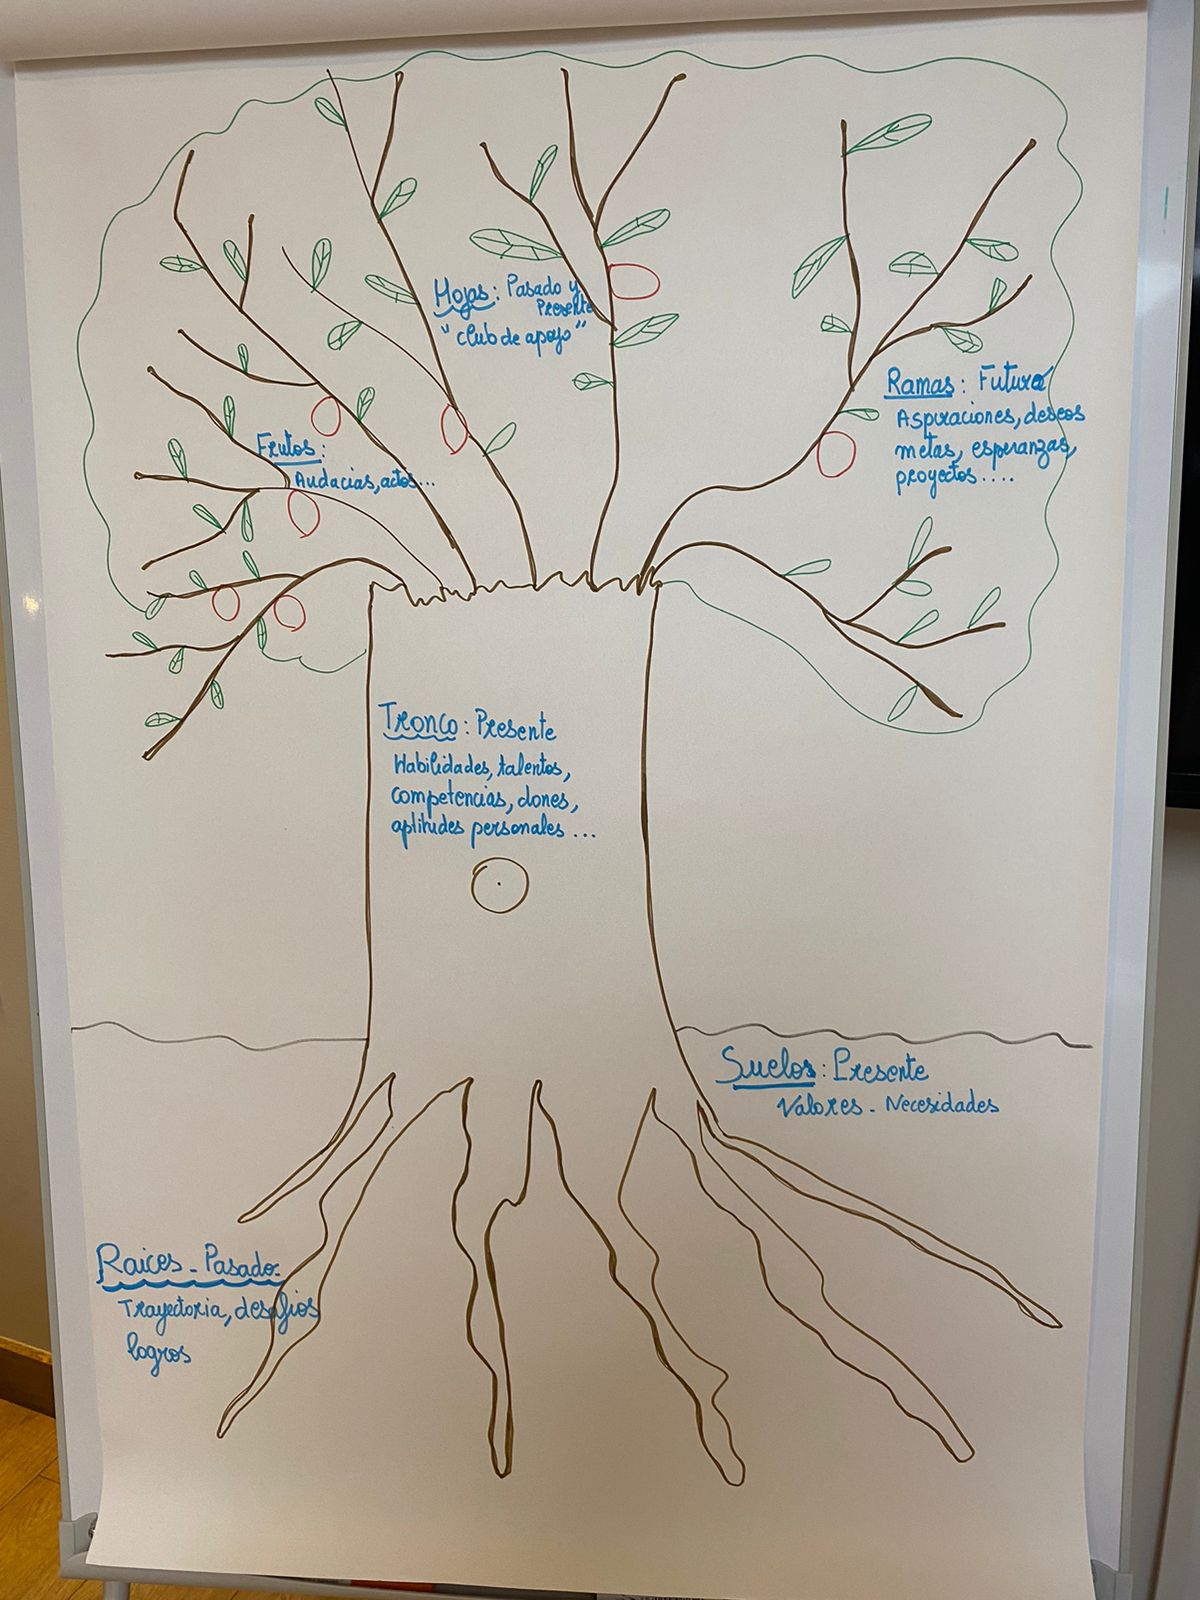 Hojas: Pasado y
Presente
"club de apoyo"
Ramas: Futuro
Aspiraciones, deseos
metas, esperanzas,
proyectos....
Frutos:
Audacias, actos...
Tronco: Presente
Habilidades, talentos,
competencias, dones,
aptitudes personales...
Suelos: Presente
Valores - Necesidades
Raices - Pasado:
Trayectoria, desafios
logros